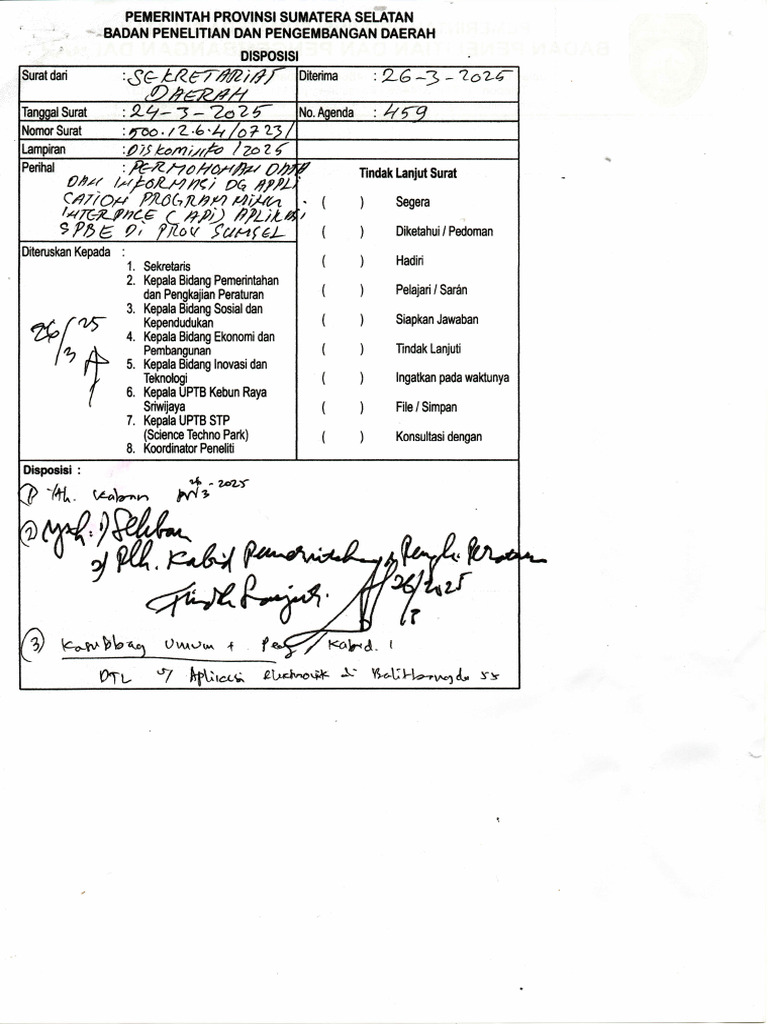 PEMERINTAH PROVINSI SUMATERA SELATAN
BADAN PENELITIAN DAN PENGEMBANGAN DAERAH
DISPOSISI
Surat dari : SEKRETARIAT
DAERAH
Diterima : 26-3-2025
Tanggal Surat : 24-3-2025
No. Agenda : 459
Nomor Surat : 500.12.6.4/0723/
Lampiran : Diskominfo/2025
Perihal : PERMOHONAN DATA
DAN INFORMASI DG APPLI
CATION PROGRAMMING
INTERPACE (API) APLIKASI
SPBE Di PROV SUMSEL
Tindak Lanjut Surat
( ) Segera
( ) Diketahui / Pedoman
( ) Hadiri
( ) Pelajari / Saran
( ) Siapkan Jawaban
( ) Tindak Lanjuti
( ) Ingatkan pada waktunya
( ) File / Simpan
( ) Konsultasi dengan
Diteruskan Kepada :
1. Sekretaris
2. Kepala Bidang Pemerintahan
dan Pengkajian Peraturan
3. Kepala Bidang Sosial dan
Kependudukan
4. Kepala Bidang Ekonomi dan
Pembangunan
5. Kepala Bidang Inovasi dan
Teknologi
6. Kepala UPTB Kebun Raya
Sriwijaya
7. Kepala UPTB STP
(Science Techno Park)
8. Koordinator Peneliti
26/3 25
Disposisi :
1) Yth. Kaban 26/3-2025
2) Yth: 1) Sekban
2) Plh. Kabid Pemerintahan & Pengk. Peraturan
Tindak Lanjut. 26/2025
3) Kasubbag Umum + Kabid. 1
DTL Aplikasi elektronik di Balitbangda ss